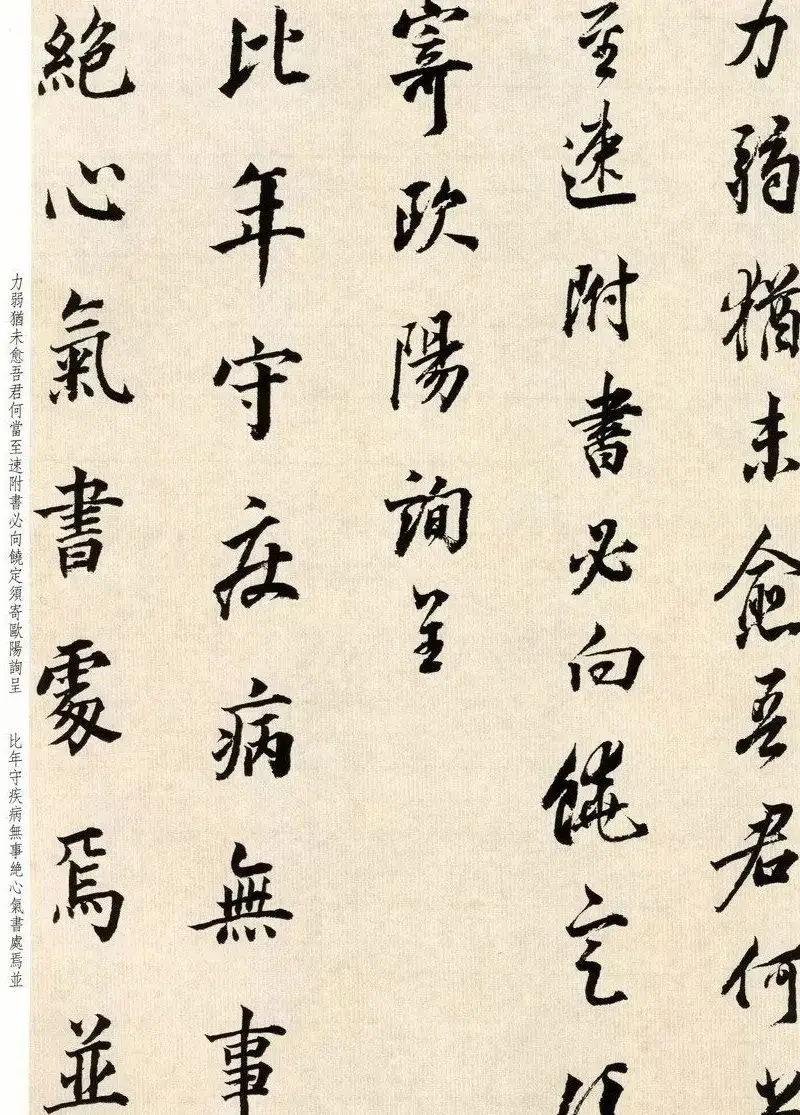 力弱猶未愈吾君何當
至速附書必向饒定須
寄歐陽詢呈
比年守疾病無事
絶心氣書處焉並
力弱猶未愈吾君何當至速附書必向饒定須寄歐陽詢呈
比年守疾病無事絶心氣書處焉並